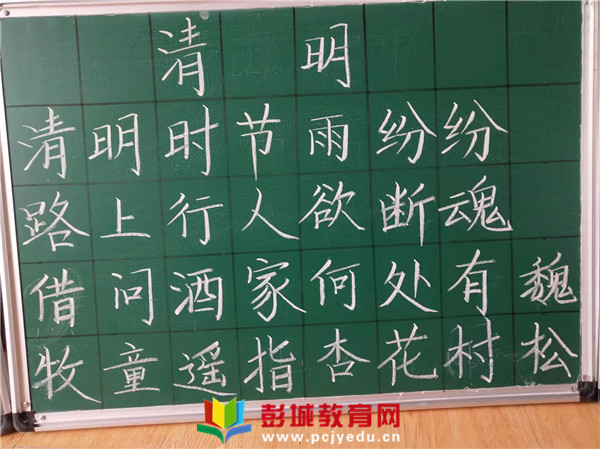 清明
清明时节雨纷纷
路上行人欲断魂
借问酒家何处有 魏
牧童遥指杏花村 松
彭城教育网
www.pcjyedu.cn